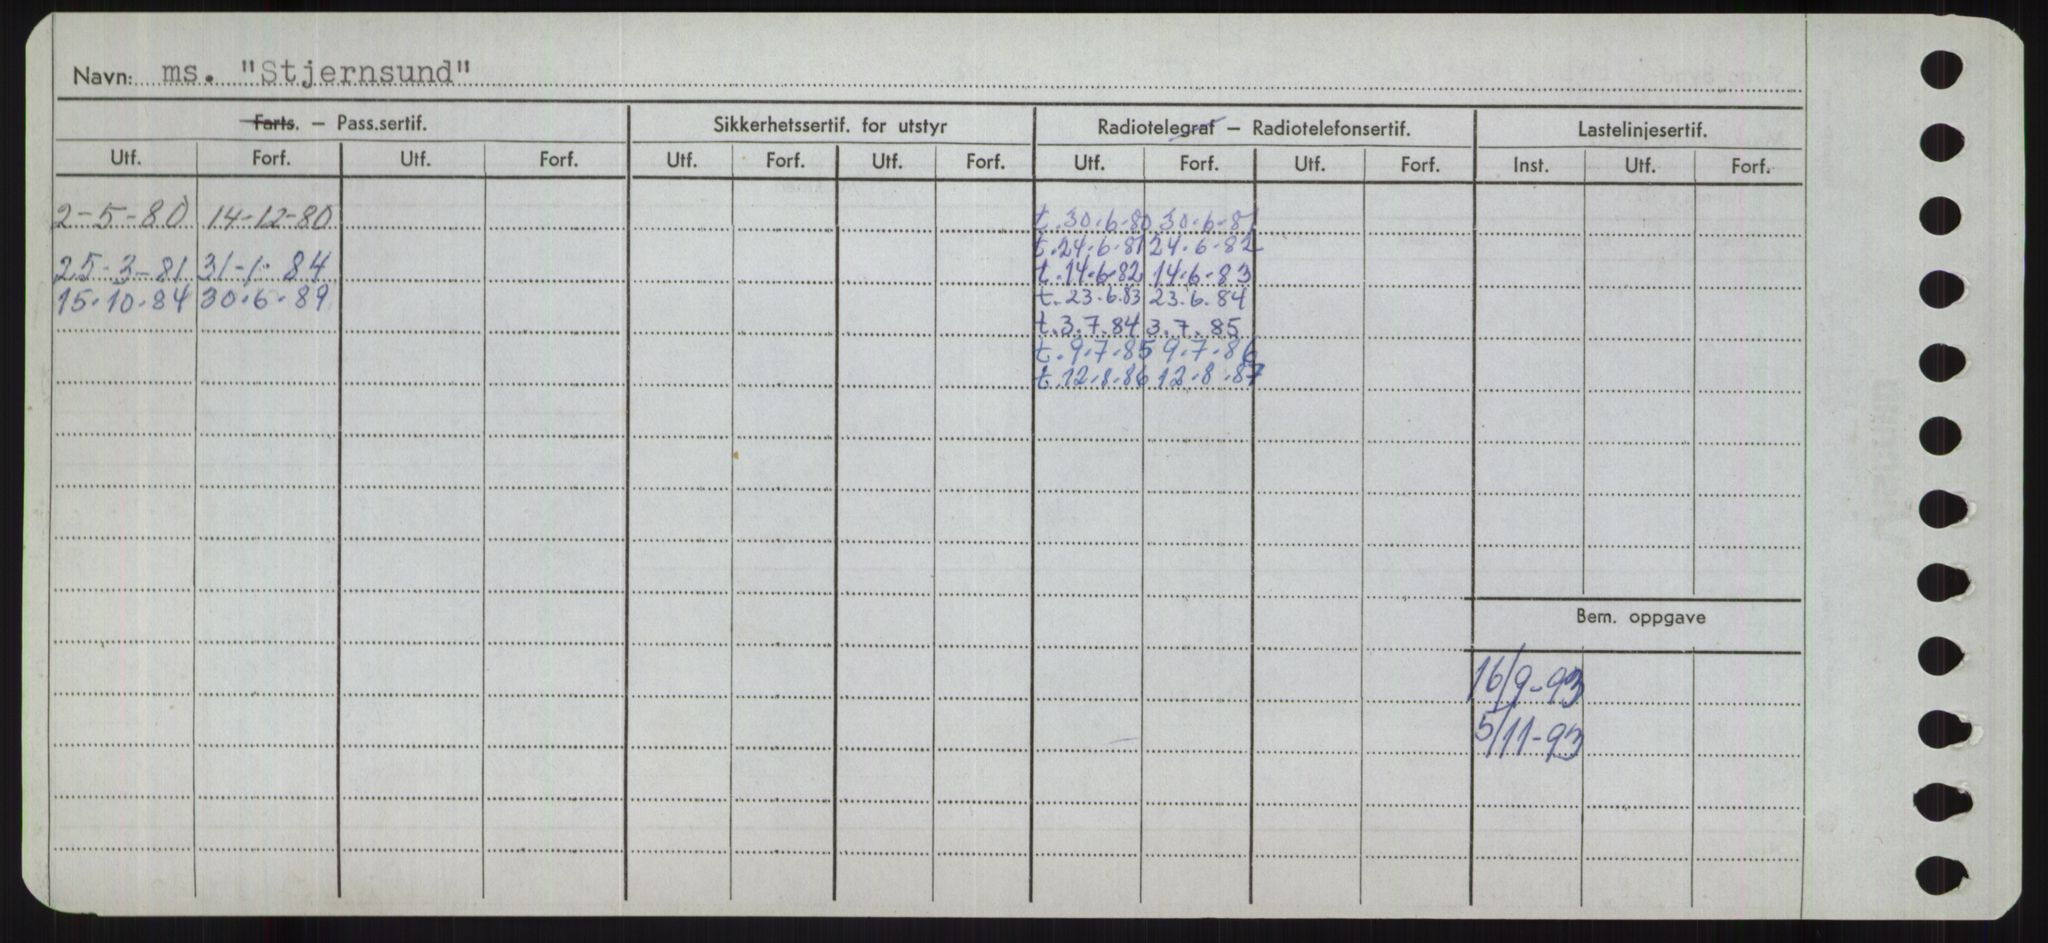 Navn: ms. "Stjernsund"
Farts. – Pass.sertif. Sikkerhetssertif. for utstyr Radiotelegraf – Radiotelefonsertif. Lastelinjesertif.
Utf. Forf. Utf. Forf. Utf. Forf. Utf. Forf. Utf. Forf. Utf. Forf. Inst. Utf. Forf.
2-5-80 14-12-80 t.30.6.80 30.6.81
t.24.6.81 24.6.82
25-3-81 31-1-84 t.14.6.82 14.6.83
15.10.84 30.6.89 t.23.6.83 23.6.84
t.3.7.84 3.7.85
t.9.7.85 9.7.86
t.12.8.86 12.8.87
Bem. oppgave
16/9-93
5/11-93